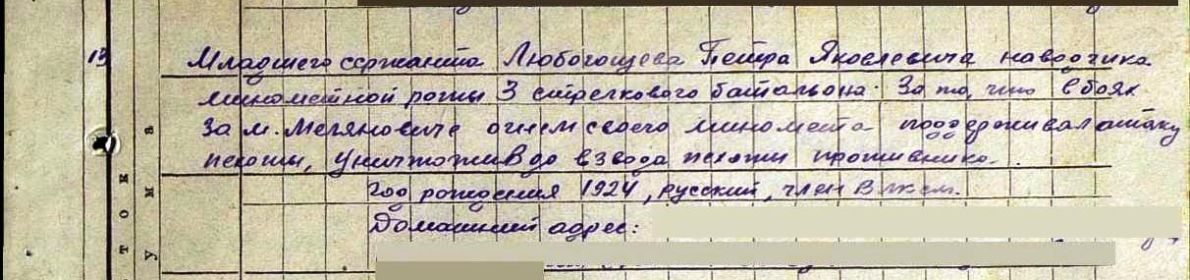 13 Младшего сержанта Любогощева Петра Яковлевича наводчика
минометной роты 3 стрелкового батальона. За то, что в боях
за м. Меляновиче огнем своего миномета поддерживал атаку
пехоты, уничтожив до взвода пехоты противника.
Год рождения 1924, русский, член ВЛКСМ.
Домашний адрес: